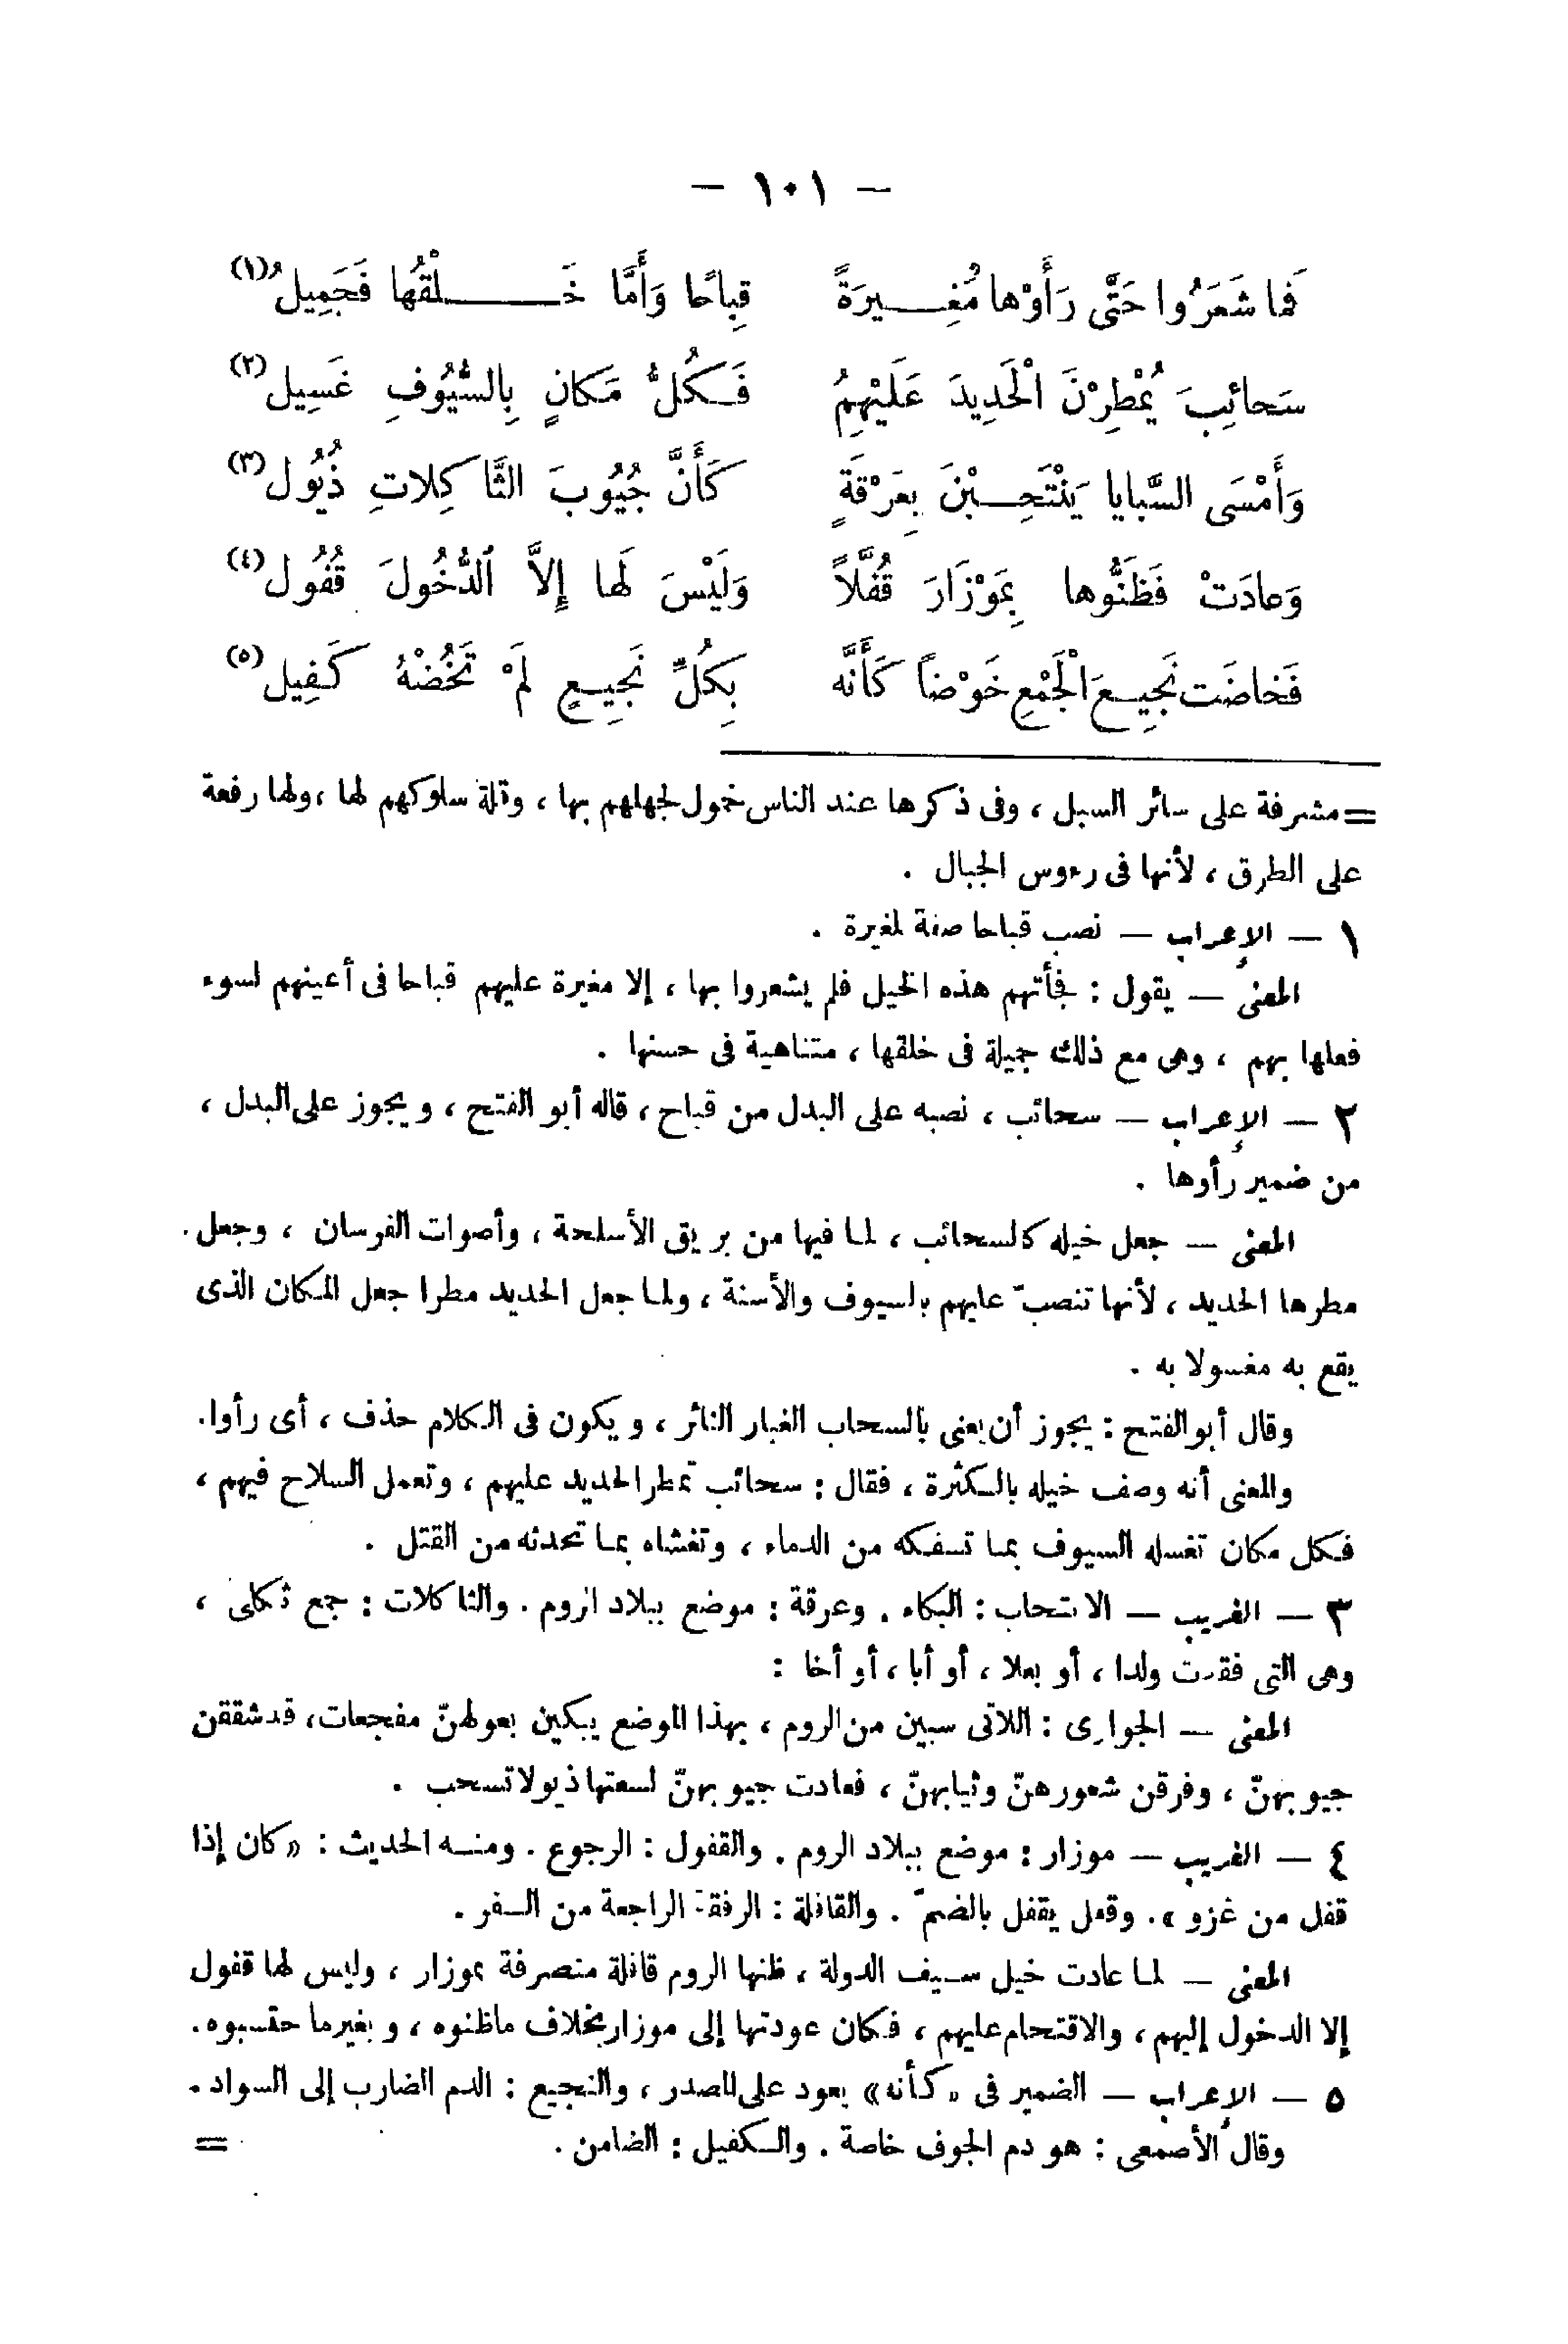 — ١٠١ —
فَما شَعَرُوا حَتَّى رَأَوْها مُغِـيرَةً قِباحًا وَأَمَّا خَـلْقُها فَجَمِيلُ (١)
سَحائِبَ يُمْطِرْنَ الْحَدِيدَ عَلَيْهِمُ فَـكُلُّ مَكانٍ بِالسُّيُوفِ غَسِيل (٢)
وَأَمْسَى السَّبايا يَنْتَحِـبْنَ بِعَرْقَةٍ كَأَنَّ جُيُوبَ الثَّاكِلاتِ ذُيُول (٣)
وَعادَتْ فَظَنُّوها بِمَوْزَارَ قُفَّلاً وَلَيْسَ لَها إِلاَّ الدُّخُولَ قُفُول (٤)
فَخاضَت نَجِيـعَ الْجَمْعِ خَوْضاً كَأَنَّه بِكُلِّ نَجِيـعٍ لَمْ تَخُضْهُ كَفِيل (٥)
= مشرفة على سائر السبل ، وفى ذكرها عند الناس خمول لجهلهم بها ، وقلة سلوكهم لها ، ولها رفعة
على الطرق ، لأنها فى رءوس الجبال .
١ — الإعراب — نصب قباحا صفة لمغيرة .
المعنى — يقول : فجأتهم هذه الخيل فلم يشعروا بها ، إلا مغيرة عليهم قباحا فى أعينهم لسوء
فعلها بهم ، وهى مع ذلك جميلة فى خلقها ، متناهية فى حسنها .
٢ — الإعراب — سحائب ، نصبه على البدل من قباح ، قاله أبو الفتح ، ويجوز على البدل ،
من ضمير رأوها .
المعنى — جعل خيله كالسحائب ، لما فيها من بريق الأسلحة ، وأصوات الفرسان ، وجعل
مطرها الحديد ، لأنها تنصبّ عليهم بالسيوف والأسنة ، ولما جعل الحديد مطرا جعل المكان الذى
يقع به مغسولا به .
وقال أبو الفتح : يجوز أن يعنى بالسحاب الغبار الثائر ، ويكون فى الكلام حذف ، أى رأوا.
والمعنى أنه وصف خيله بالـكثرة ، فقال : سحائب تمطر الحديد عليهم ، وتعمل السلاح فيهم ،
فـكل مكان تغسله السيوف بما تسفكه من الدماء ، وتغشاه بما تحدثه من القتل .
٣ — الغريب — الانتحاب : البكاء . وعرقة : موضع ببلاد الروم . والثاكلات : جمع ثكلى ،
وهى التى فقدت ولدا ، أو بعلا ، أو أبا ، أو أخا :
المعنى — الجوارى : اللاتى سبين من الروم ، بهذا الموضع يبكين بعولهنّ مفجعات، قد شققن
جيوبهنّ ، وفرقن شعورهنّ وثيابهنّ ، فعادت جيوبهنّ لسعتها ذيولا تسحب .
٤ — الغريب — موزار : موضع ببلاد الروم . والقفول : الرجوع . ومنـه الحديث : « كان إذا
قفل من غزو ». وقفل يقفل بالضمّ . والقافلة : الرفقة الراجعة من السفر .
المعنى — لما عادت خيل سيف الدولة ، ظنها الروم قافلة منصرفة بموزار ، وليس لها قفول
إلا الدخول إليهم ، والاقتحام عليهم ، فـكان عودتها إلى موزار بخلاف ماظنوه ، وبغير ما حقسبوه.
٥ — الإعراب — الضمير فى « كأنه » يعود على المصدر ، والنجيع : الدم الضارب إلى السواد .
وقال الأصمعى : هو دم الجوف خاصة . والـكفيل : الضامن . =